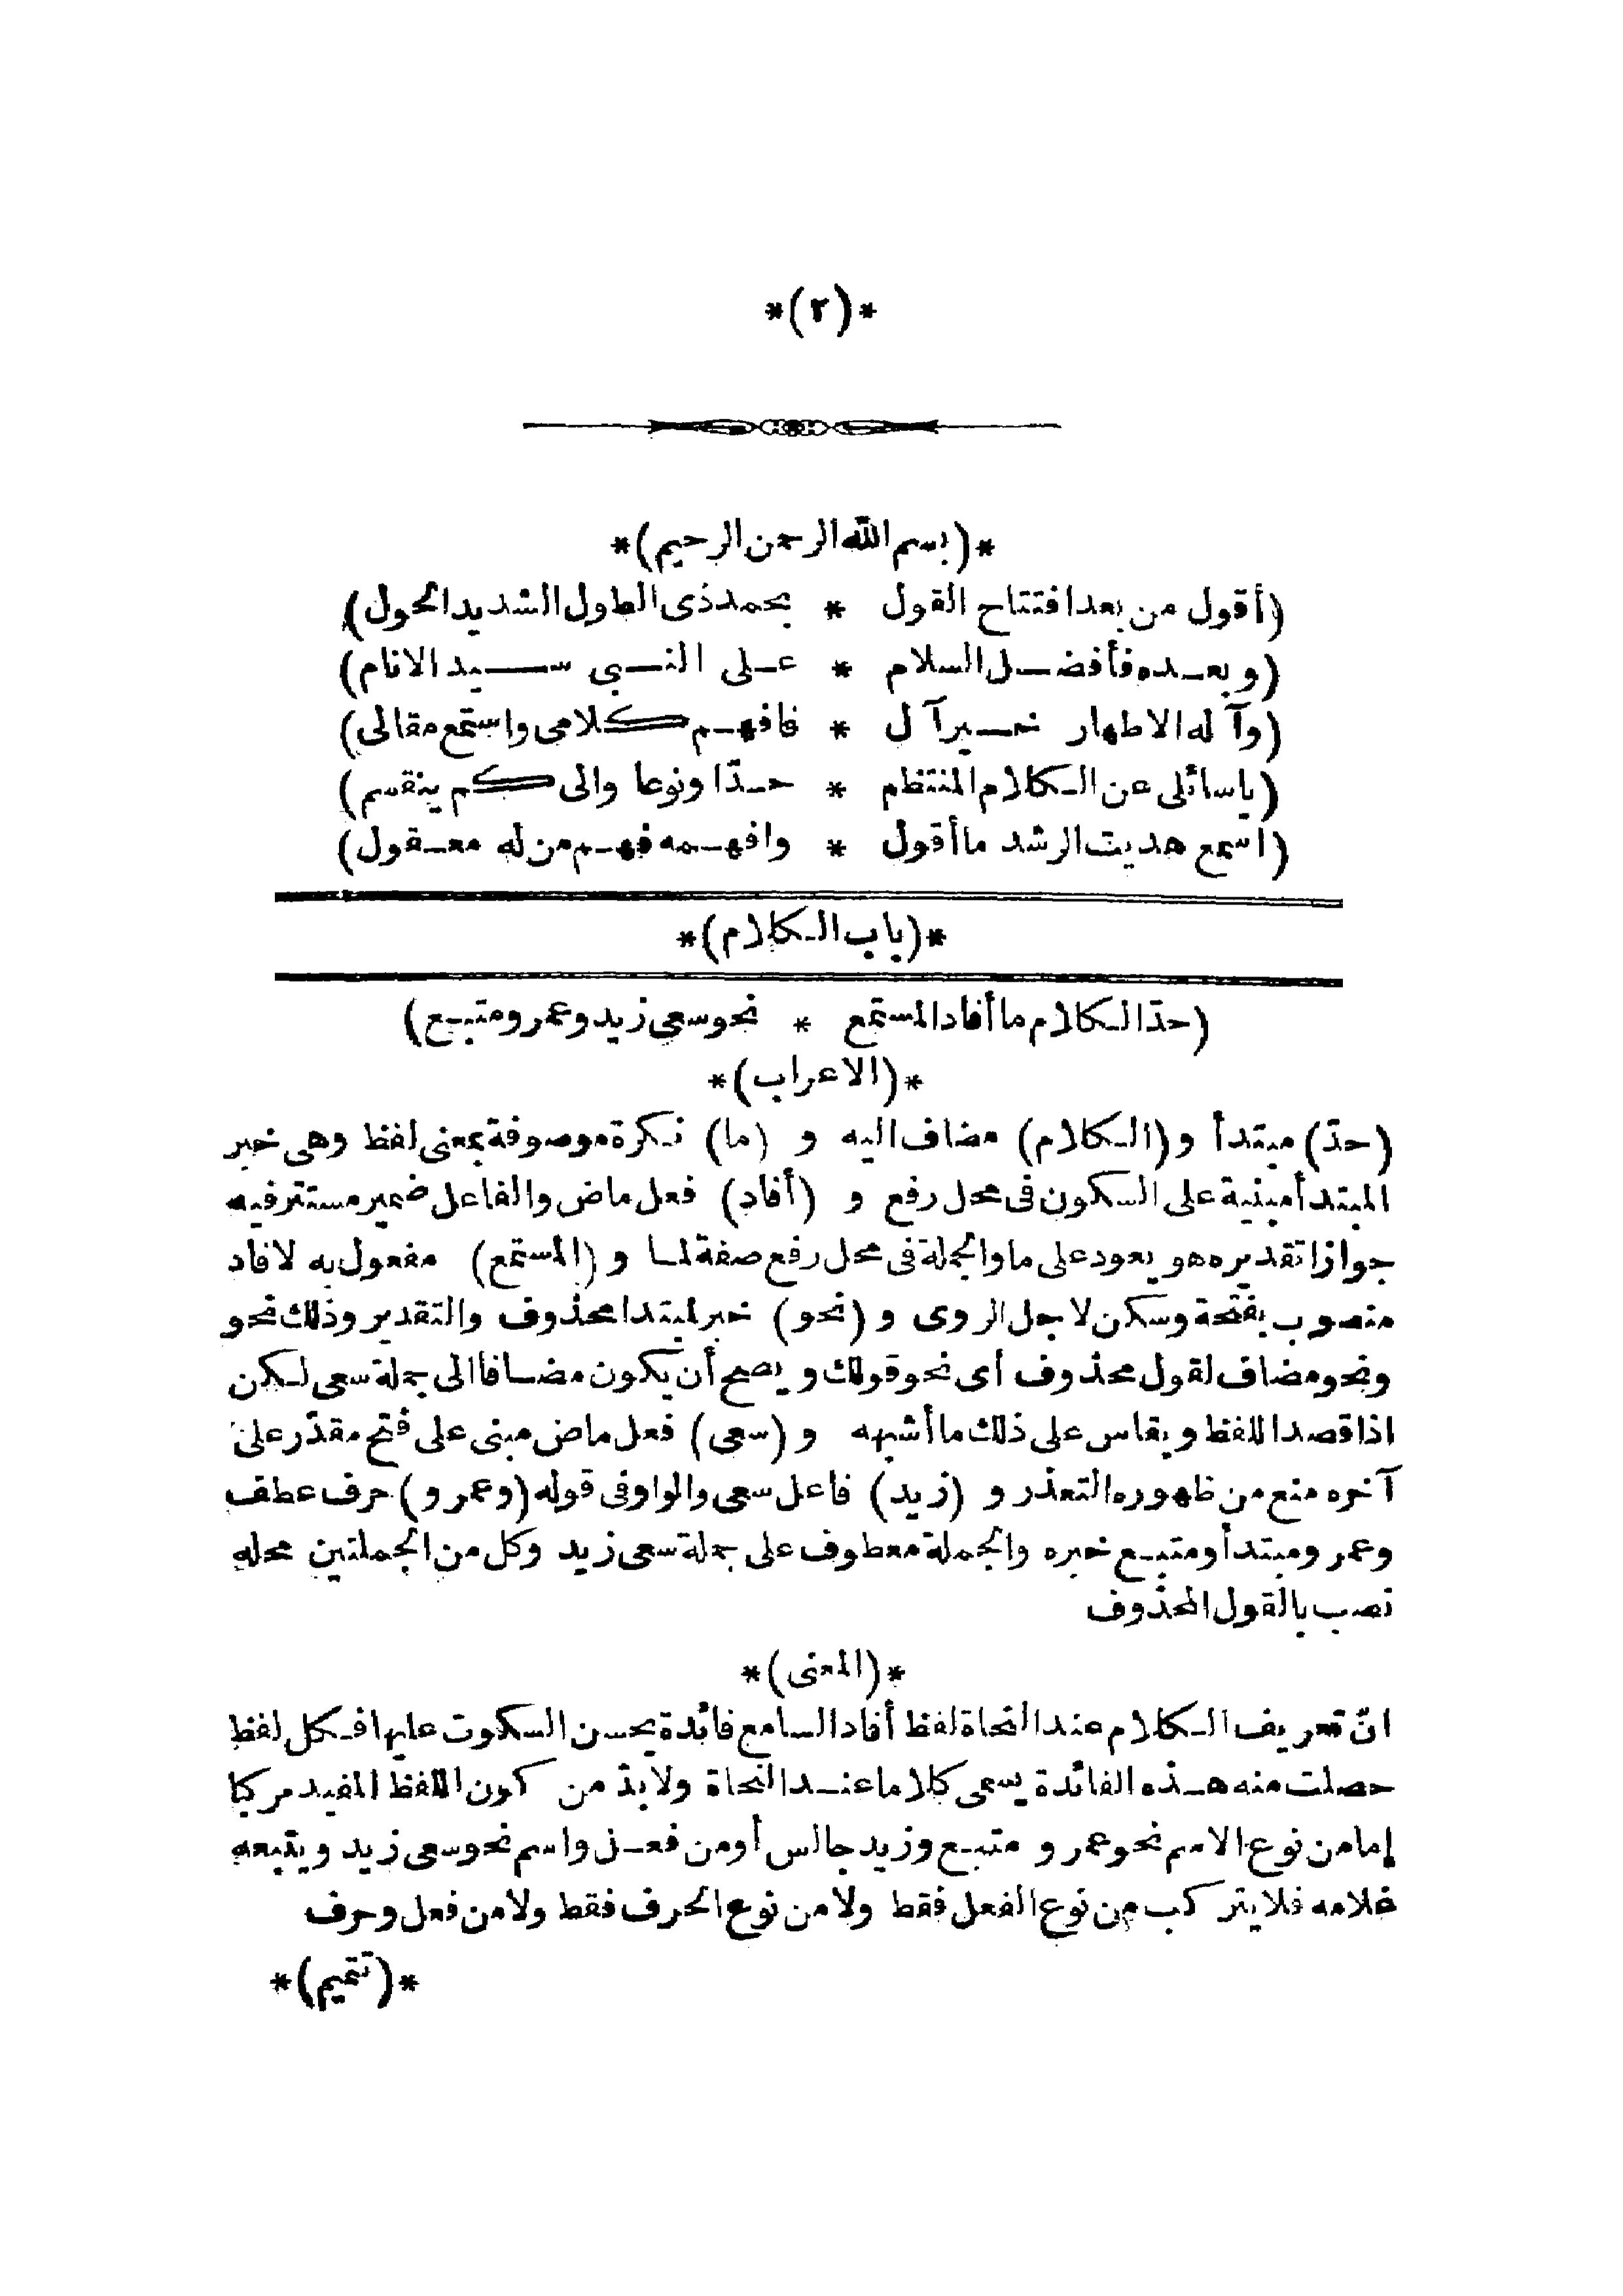 *(٢)*
*(بسم الله الرحمن الرحيم)*
(أقول من بعد افتتاح القول * بحمد ذى الطول الشديد الحول)
(وبعده فأفضل السلام * على النبى سيد الانام)
(وآله الاطهار خير آل * فافهم كلامى واستمع مقالى)
(ياسائلى عن الكلام المنتظم * حدّا ونوعا والى كم ينقسم)
(اسمع هديت الرشد ما أقول * وافهمه فهم من له معقول)
*(باب الكلام)*
(حدّ الكلام ما أفاد المستمع * نحو سعى زيد وعمرو متبع)
*(الاعراب)*
(حدّ) مبتدأ و(الكلام) مضاف اليه و (ما) نكرة موصوفة بمعنى لفظ وهى خبر
المبتدأ مبنية على السكون فى محل رفع و (أفاد) فعل ماض والفاعل ضمير مستتر فيه
جوازا تقديره هو يعود على ما والجملة فى محل رفع صفة لما و (المستمع) مفعول به لافاد
منصوب بفتحة وسكن لاجل الروى و (نحو) خبر لمبتدا محذوف والتقدير وذلك نحو
ونحو مضاف لقول محذوف أى نحو قولك ويصح أن يكون مضافا الى جملة سعى لكن
اذا قصد اللفظ ويقاس على ذلك ما أشبهه و (سعى) فعل ماض مبنى على فتح مقدّر على
آخره منع من ظهوره التعذر و (زيد) فاعل سعى والواو فى قوله (وعمرو) حرف عطف
وعمرو مبتدأ ومتبع خبره والجملة معطوف على جملة سعى زيد وكل من الجملتين محله
نصب بالقول المحذوف
*(المعنى)*
انّ تعريف الكلام عند النحاة لفظ أفاد السامع فائدة يحسن السكوت عليها فكل لفظ
حصلت منه هذه الفائدة يسمى كلاما عند النحاة ولابدّ من كون اللفظ المفيد مركبا
إما من نوع الاسم نحو عمرو متبع وزيد جالس أو من فعل واسم نحو سعى زيد ويتبعه
غلامه فلا يتركب من نوع الفعل فقط ولا من نوع الحرف فقط ولا من فعل وحرف
*(تتميم)*